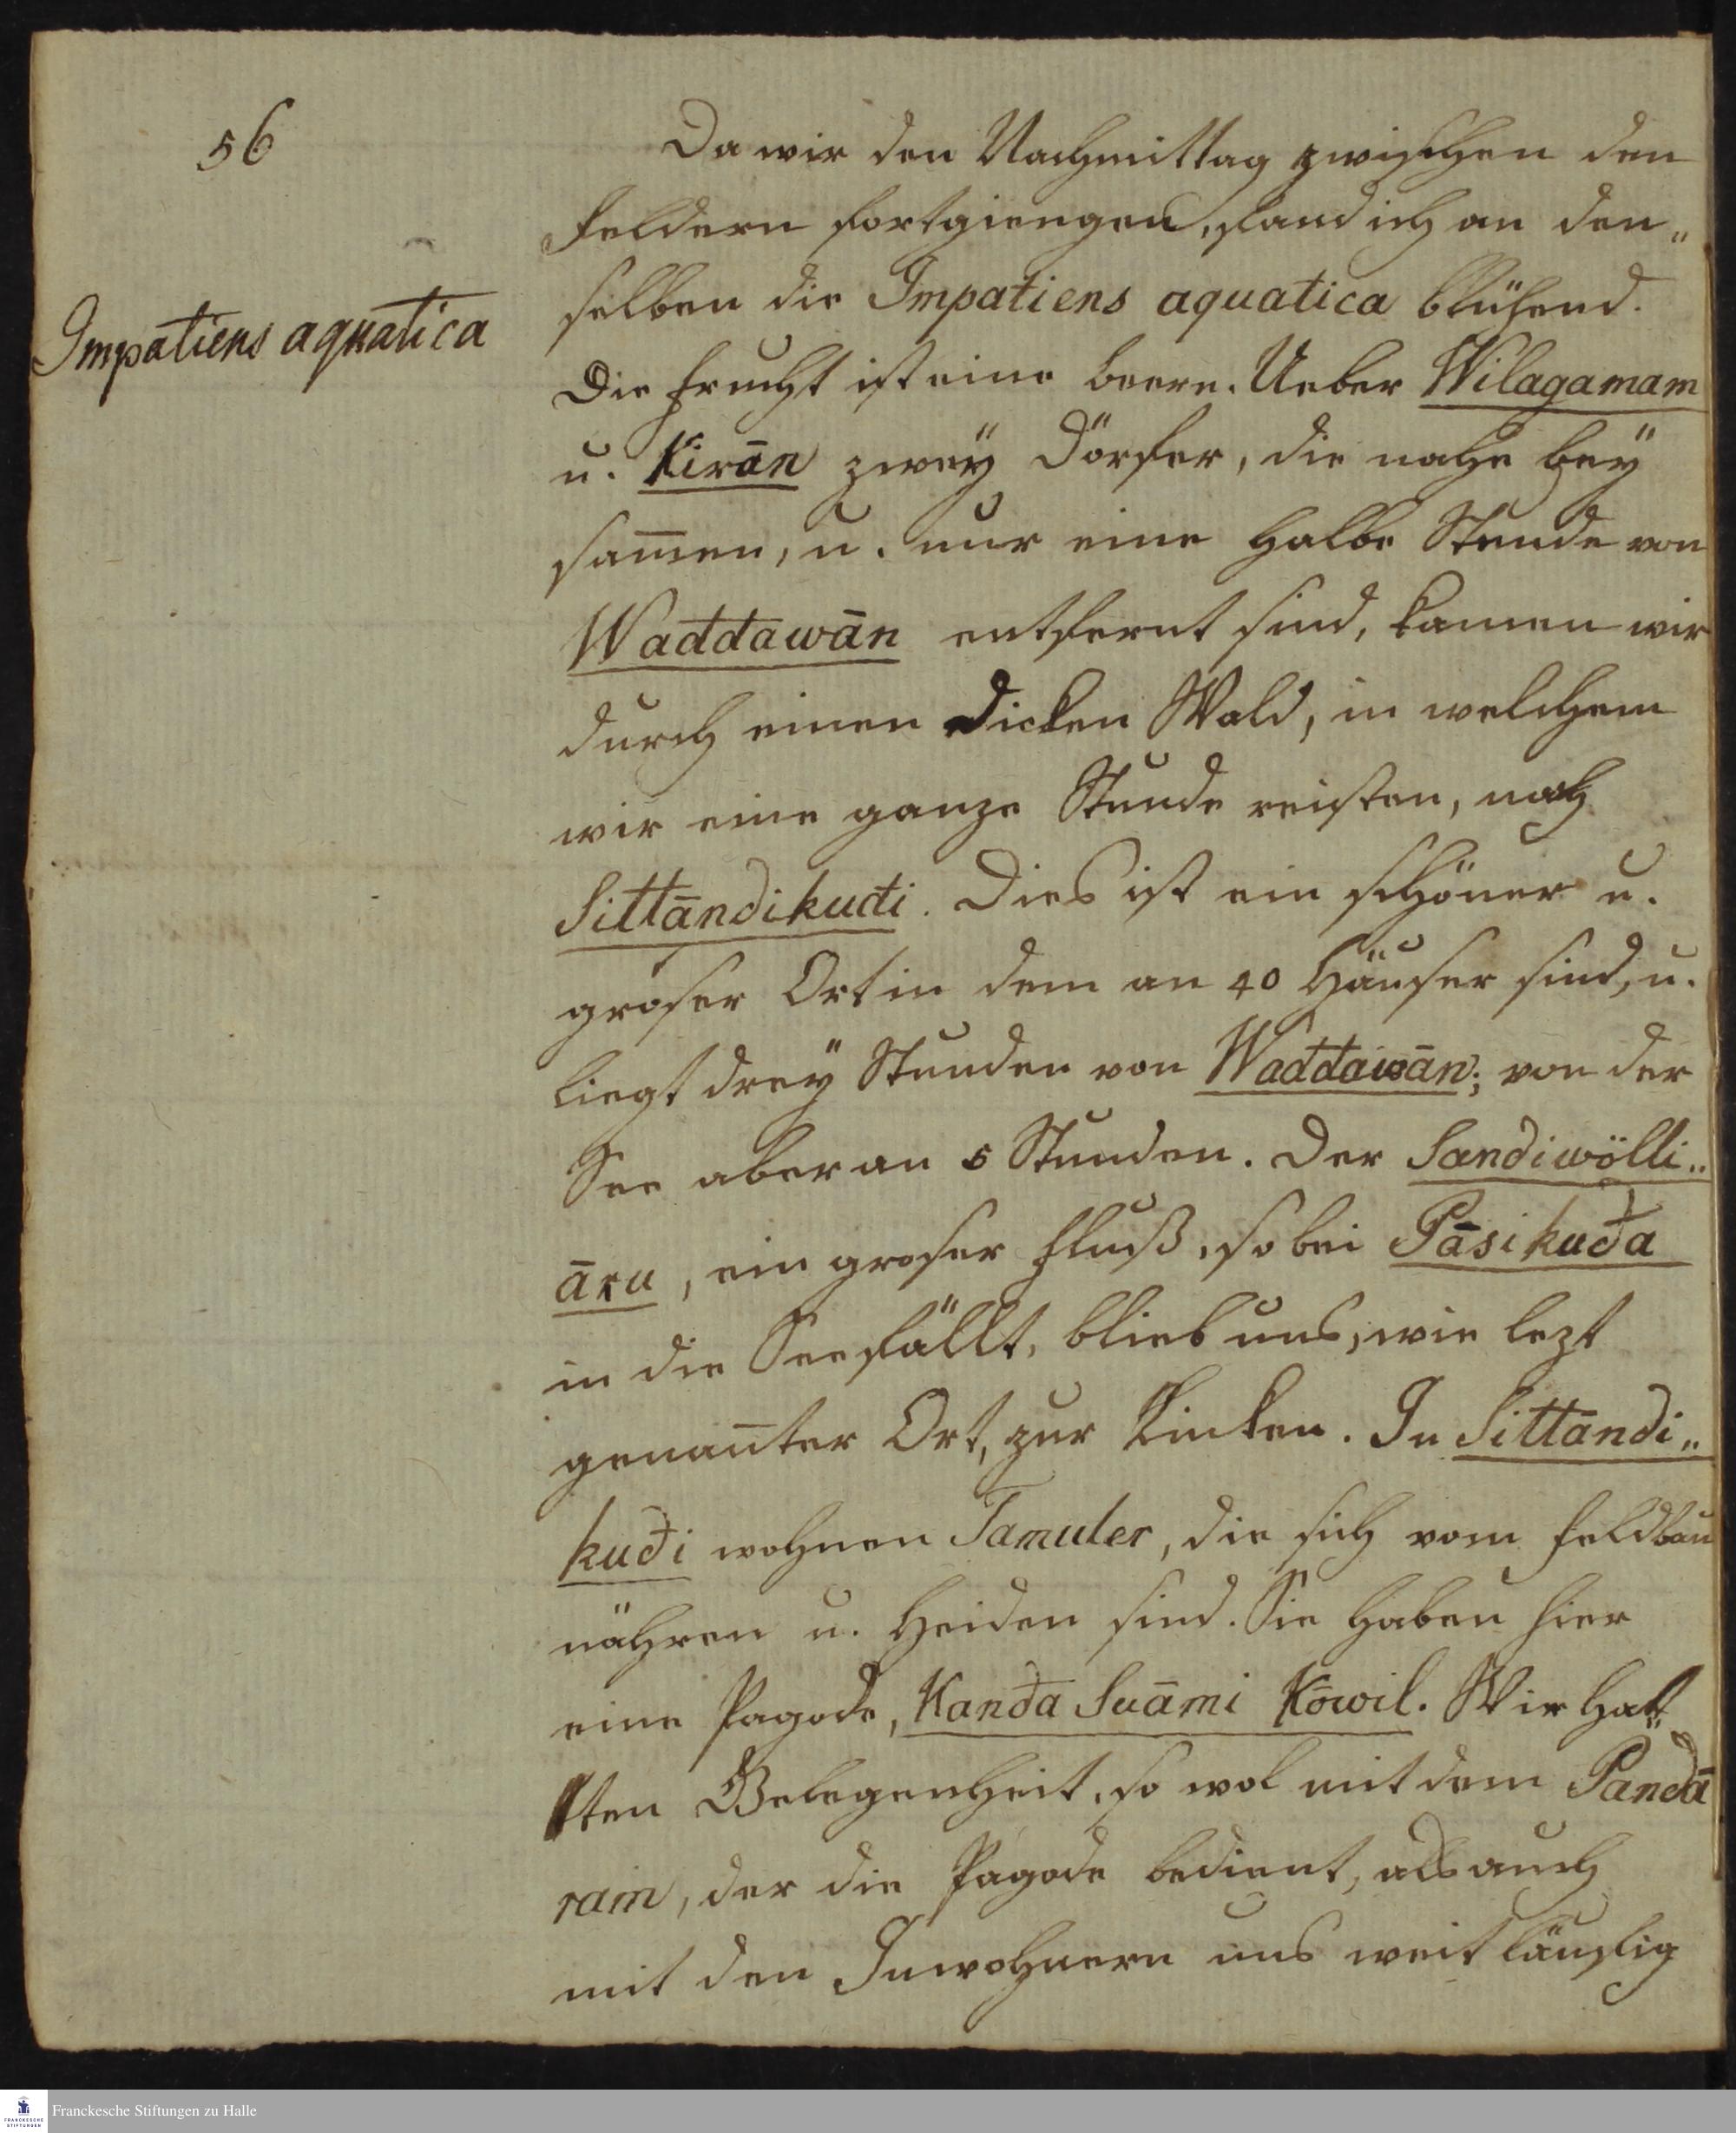 56
Impatiens aquatica
Da wir den Nachmittag zwischen den
Feldern fortgiengen, fand ich an den„
selben die Impatiens aquatica blühend.
Die Frucht ist eine beere. Ueber Wilagamam
u. Kirān zweÿ Dörfer, die nahe beÿ
sam̄en, u. nur eine halbe Stunde von
Waddawān entfernt sind, kamen wir
durch einen dicken Wald, in welchem
wir eine ganze Stunde reisten, nach
Sittāndikudi. Dies ist ein schöner u.
groser Ort in dem an 40 Häuser sind, u.
liegt dreÿ Stunden von Waddawān; von der
See aber an 5 Stunden. Der Sandiwölli„
āru, ein groser Fluß, so bei Pāsikuda
in die See fällt, blieb uns, wie lezt
genan̄ter Ort, zur Linken. In Sittandi„
kudi wohnen Tamuler, die sich vom Feldbau
nähren u. Heiden sind. Sie haben hier
eine Pagode, Kanda Suāmi Kōwil. Wir hat„
ten Gelegenheit, so wol mit dem Pandā
ram, der die Pagode bedient, als auch
mit den Inwohnern uns weitläuflig
Franckesche Stiftungen zu Halle
FRANCKESCHE
STIFTUNGEN